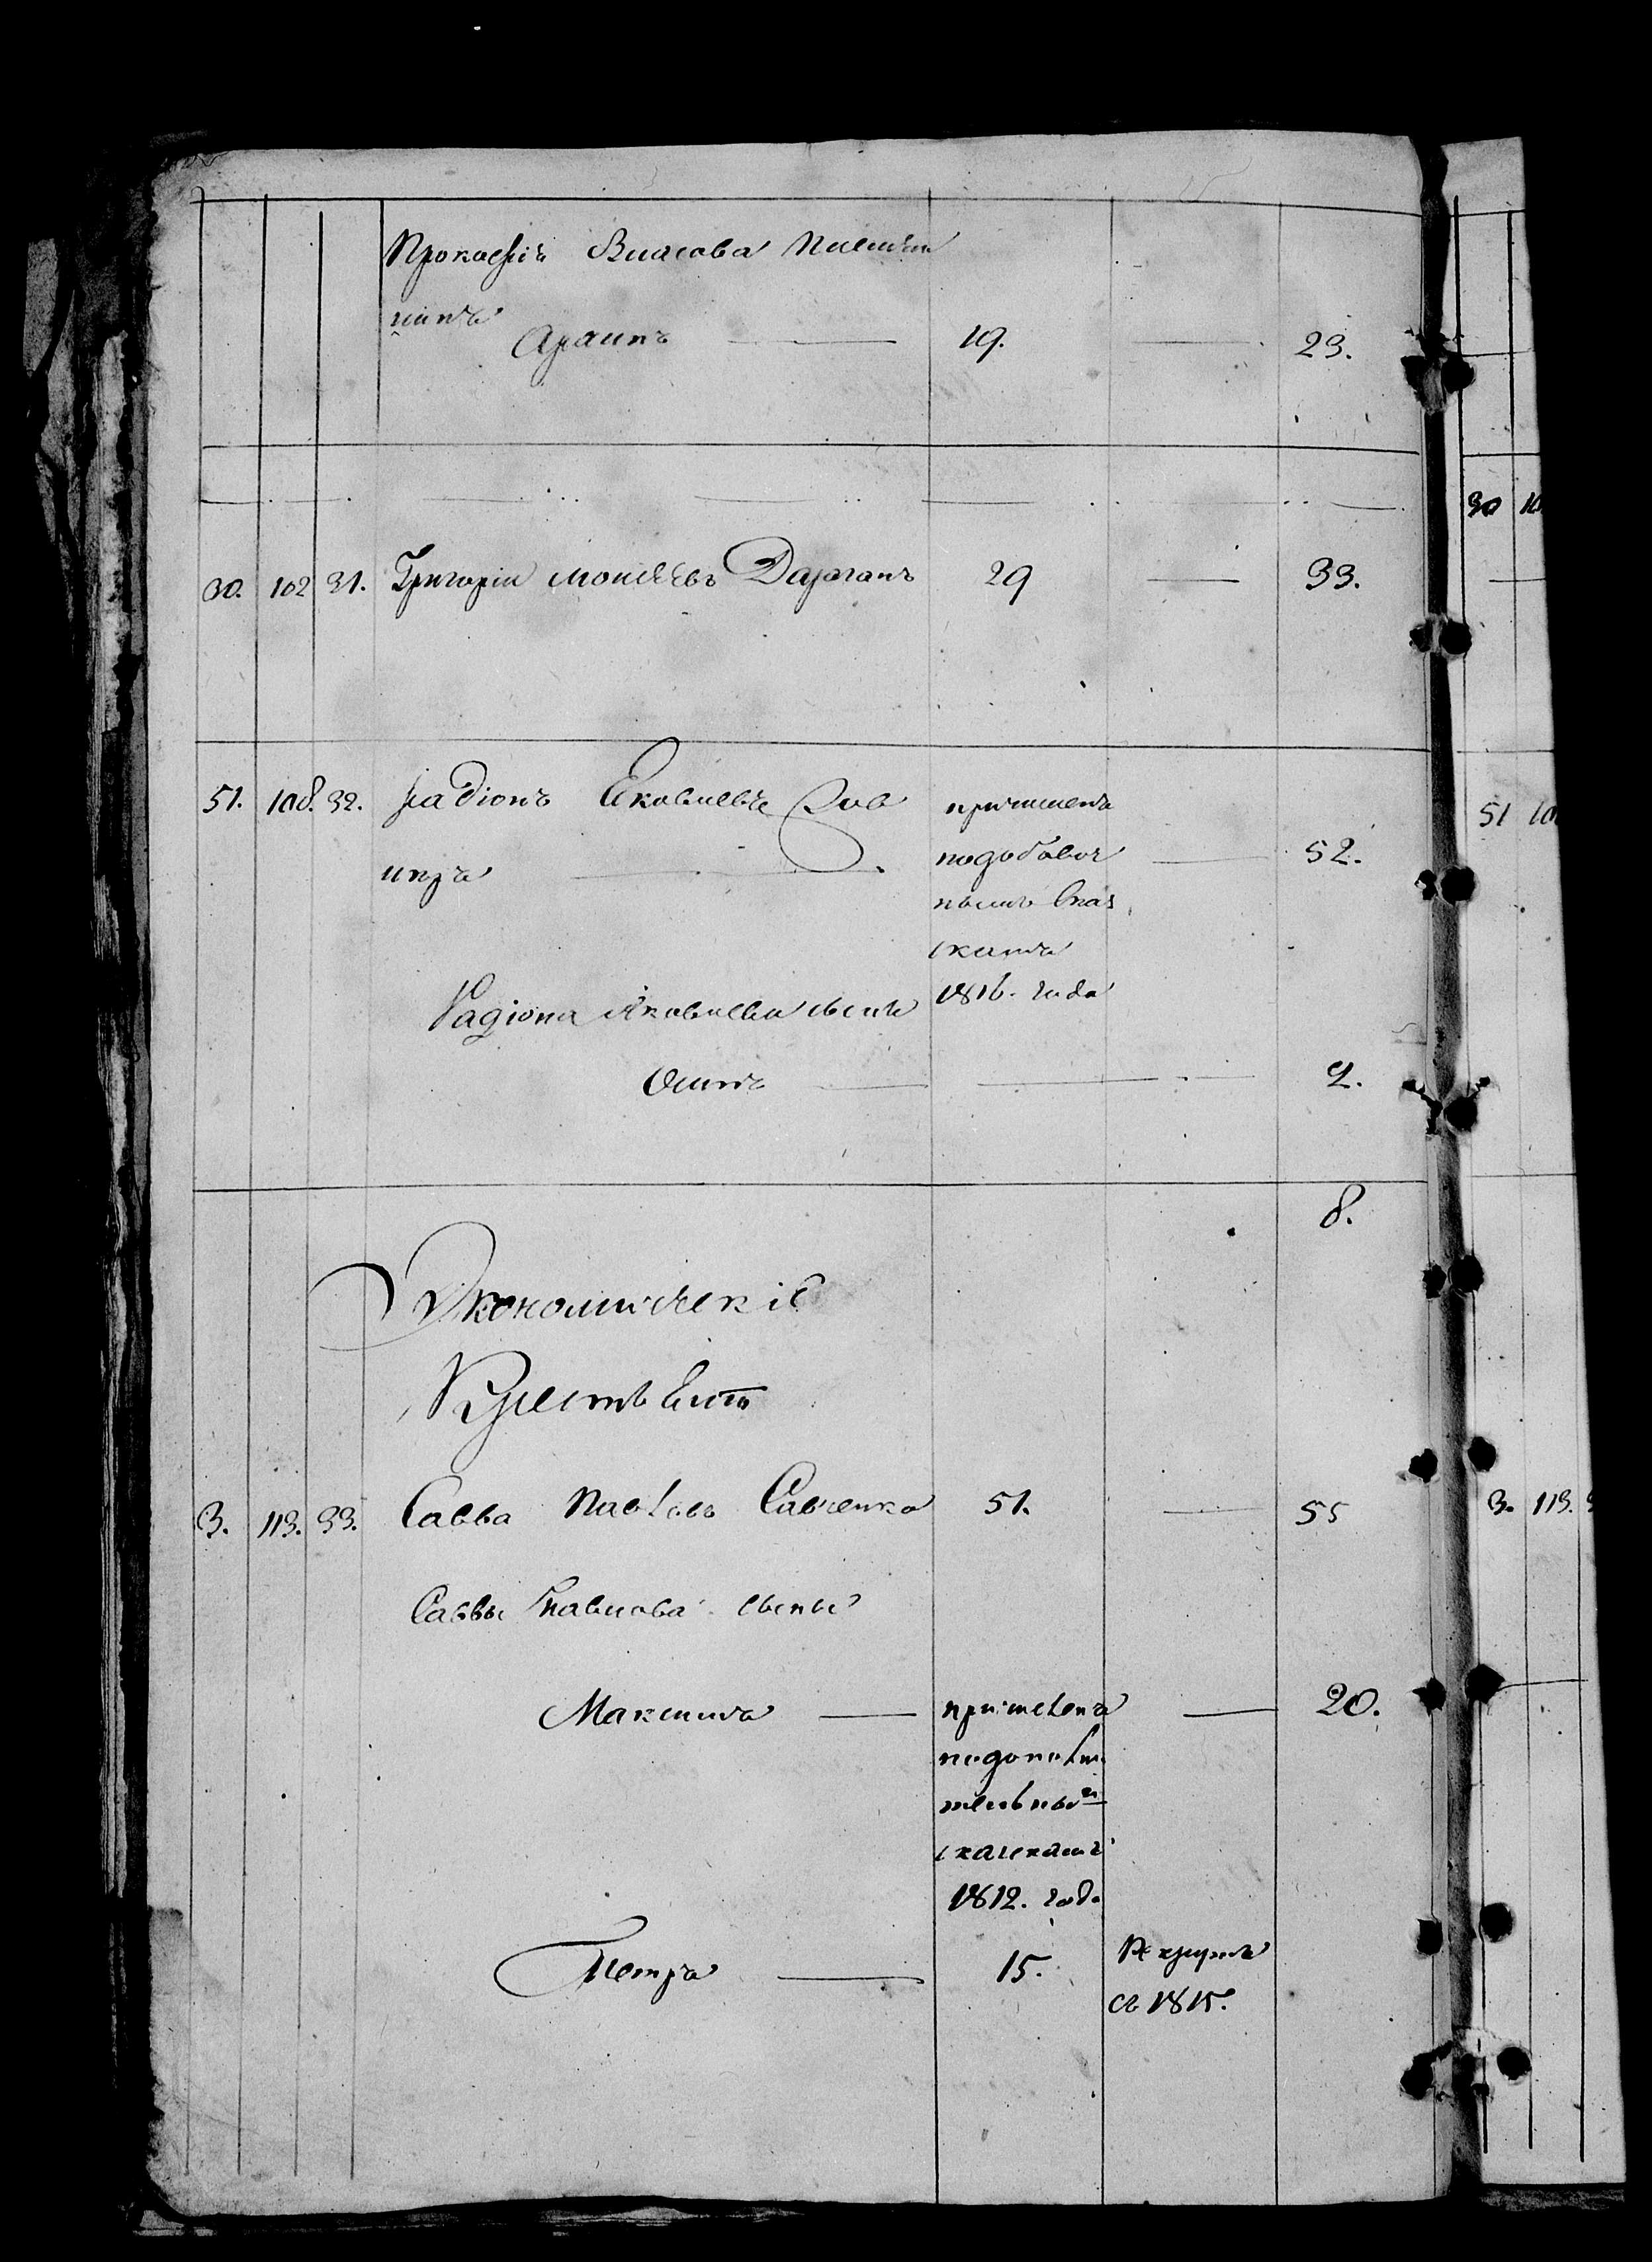 Прокофія Власова Племян
никъ
19. 23.
30. 102 31. Григорій Моисѣевъ Дарганъ 29 33.
51. 108. 32. Радіонъ Яковлевъ
причисленъ
подобавоч
52.
нымъ
скамъ
1816. года
Радіона Яковлева сынъ
Осипъ 2.
8.
Экономическіе
3. 113. 33. Савва Павловъ Савченко 51. 55
Саввы Павлова сыны
Максимъ причисленъ 20.
подополни
тельнымъ
сказкамъ
1812. года
Петръ 15. Рекрутъ
съ 1815.
30
51
3. 113.